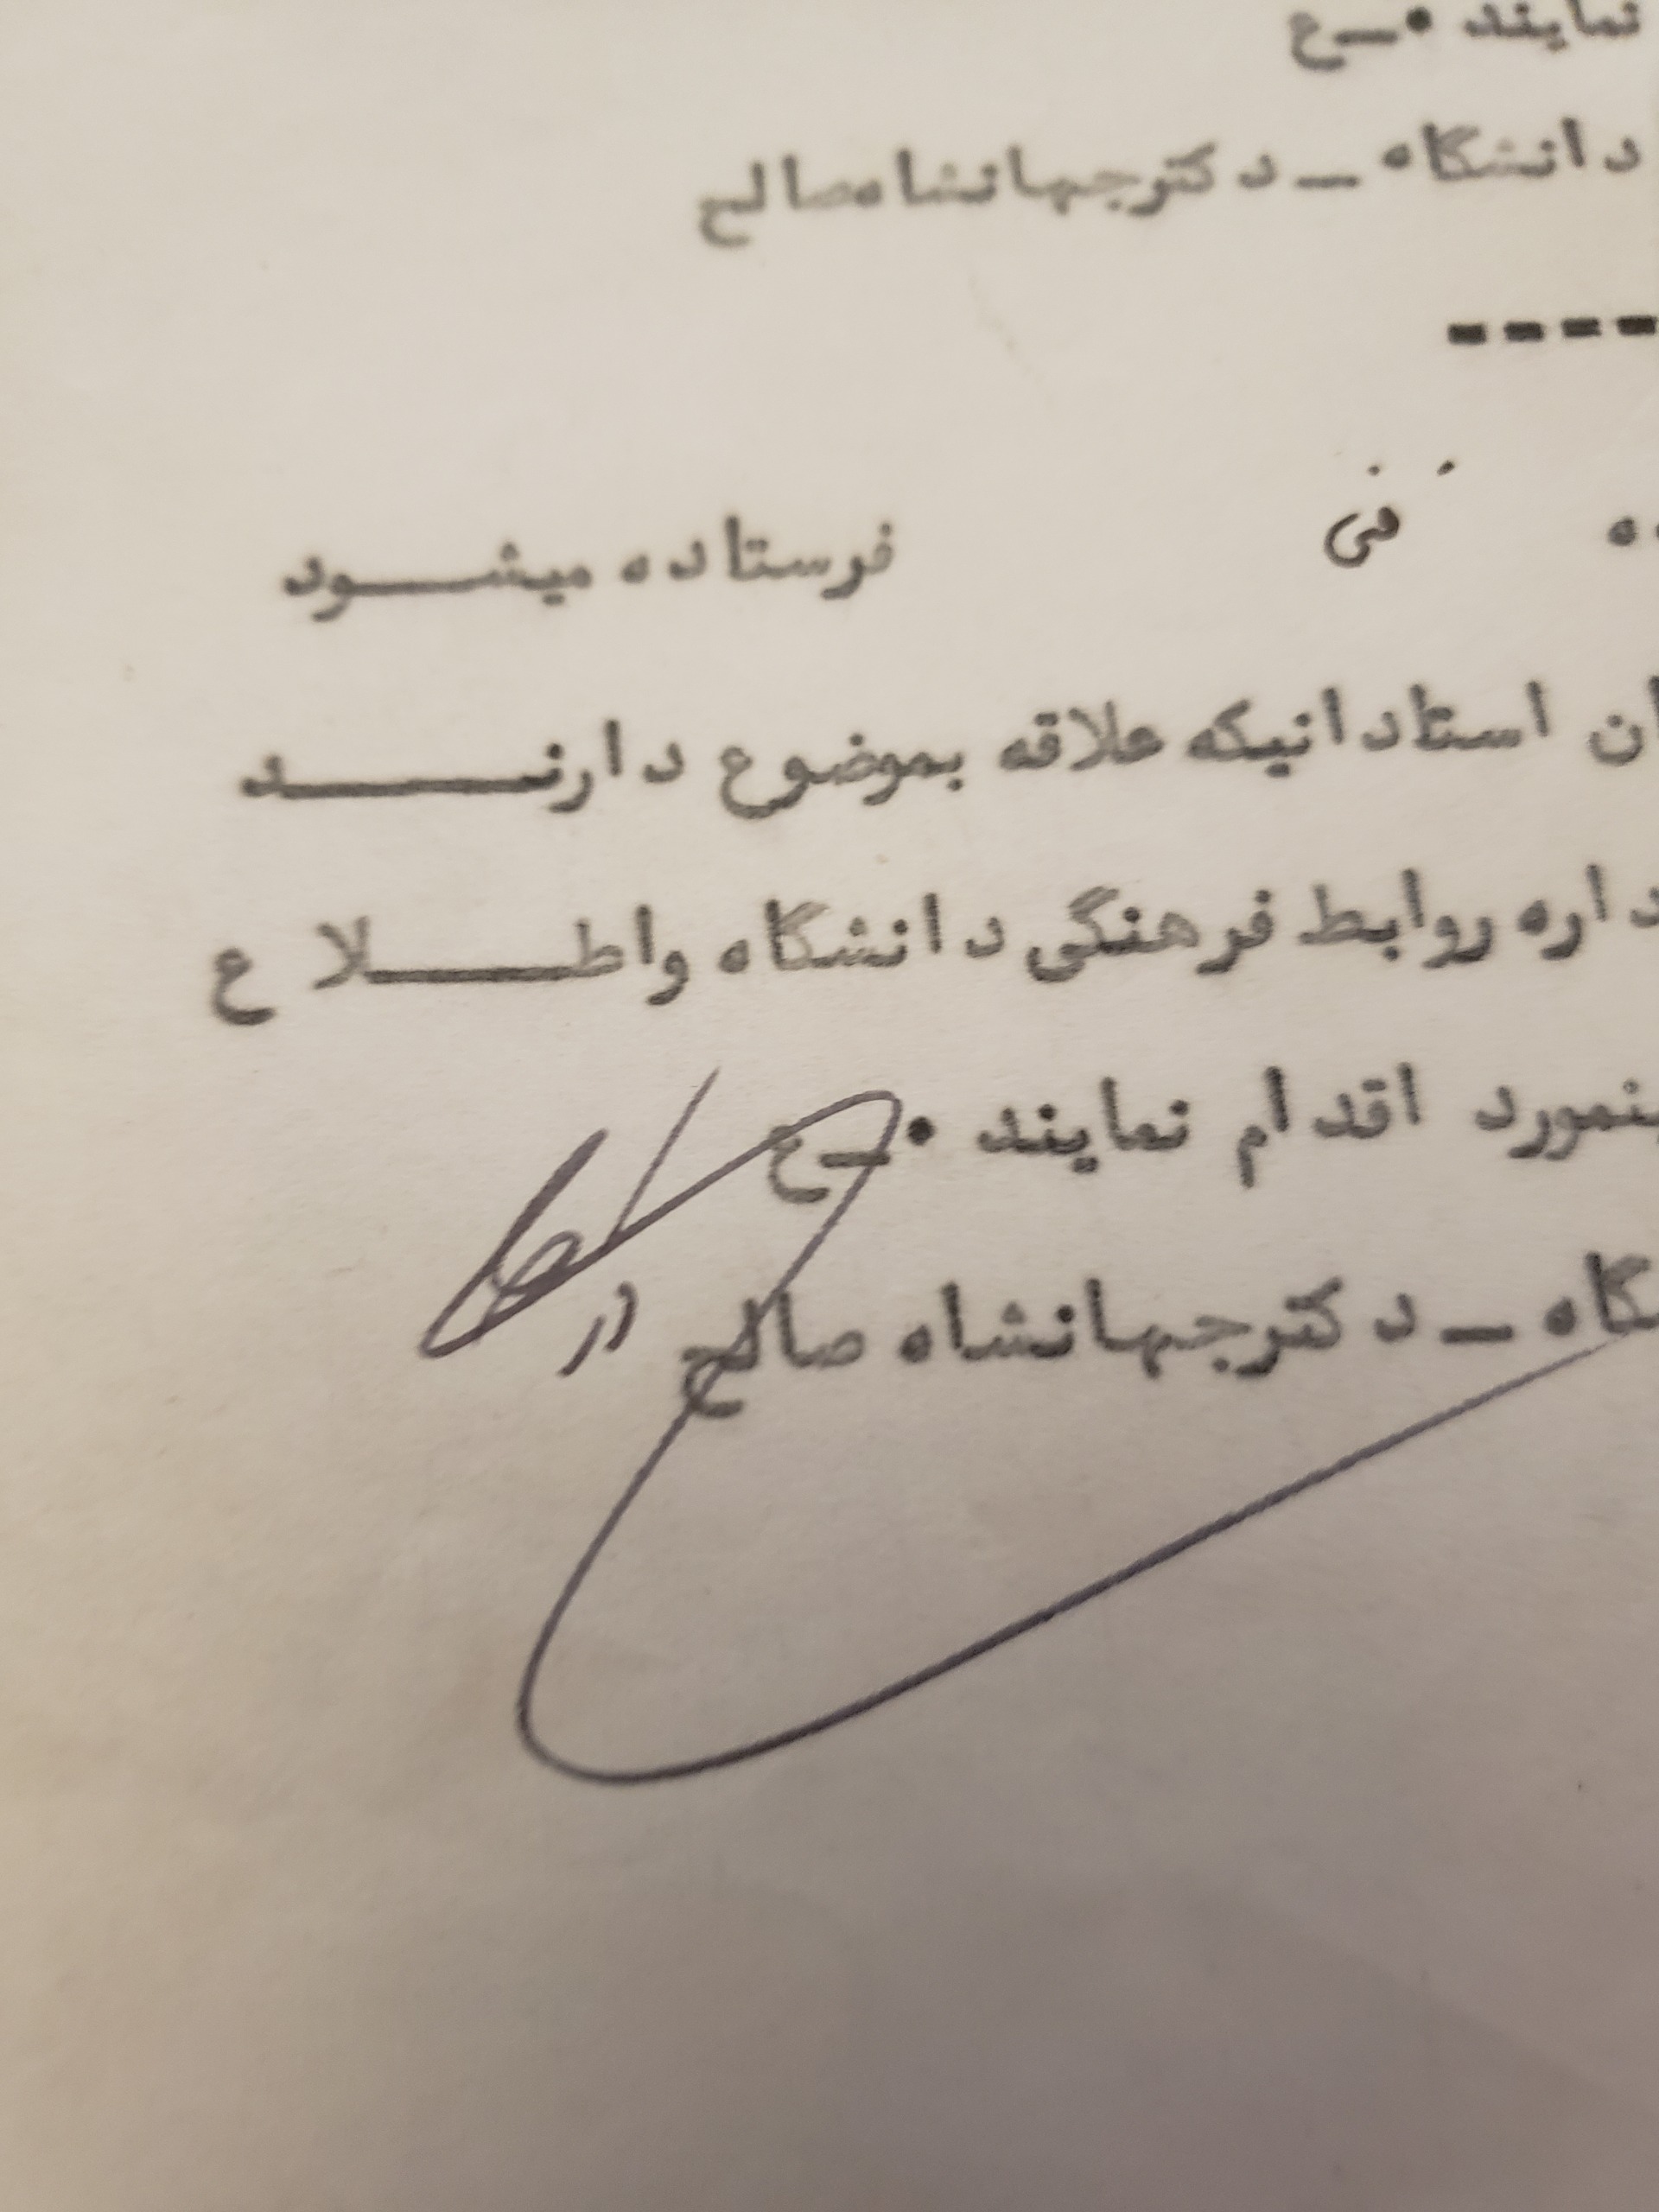 نمایند ۰ـع
دانشگاه ـ دکترجهانشاه‌صالح
----
ه فنی فرستاده میشـــود
ان استادانیکه علاقه بموضوع دارنـــــد
داره روابط فرهنگی دانشگاه واطـــــلاع
ینمورد اقدام نمایند ۰ـع
گاه ـ دکترجهانشاه صالح